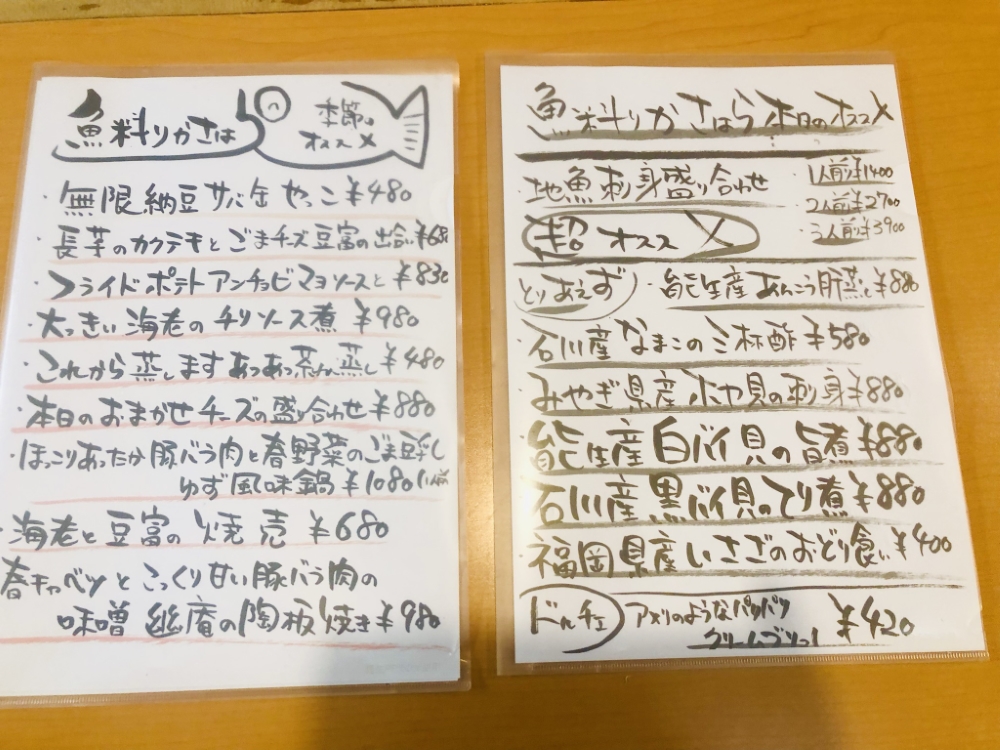 魚料りかさはら
季節の
オススメ
・無限納豆サバ缶やっこ ¥480
・長芋のカクテキとごまチーズ豆富の出合い ¥680
・フライドポテトアンチョビマヨソースと ¥830
・大っきい海老のチリソース煮 ¥980
・これから蒸しますあつあつ茶わん蒸し ¥480
・本日のおまかせチーズの盛り合わせ ¥880
・ほっこりあったか豚バラ肉と春野菜のごま豆乳し
ゆず風味鍋 ¥1080 1人前
・海老と豆富の焼売 ¥680
春キャベツとこっくり甘い豚バラ肉の
味噌幽庵の陶板焼き ¥980
魚料りかさはら 本日のオススメ
・地魚刺身盛り合わせ
・1人前¥1400
・2人前¥2700
・3人前¥3900
超オススメ
とりあえず
・能生産あんこう肝蒸し ¥880
・石川産なまこの三杯酢 ¥580
・みやぎ県産ホヤ貝の刺身 ¥880
・能生産白バイ貝の旨煮 ¥880
・石川産黒バイ貝のてり煮 ¥880
・福岡県産いさごのおどり食い ¥400
ドルチェ
アメリのようなパリパリ
クリームブリュレ
¥420